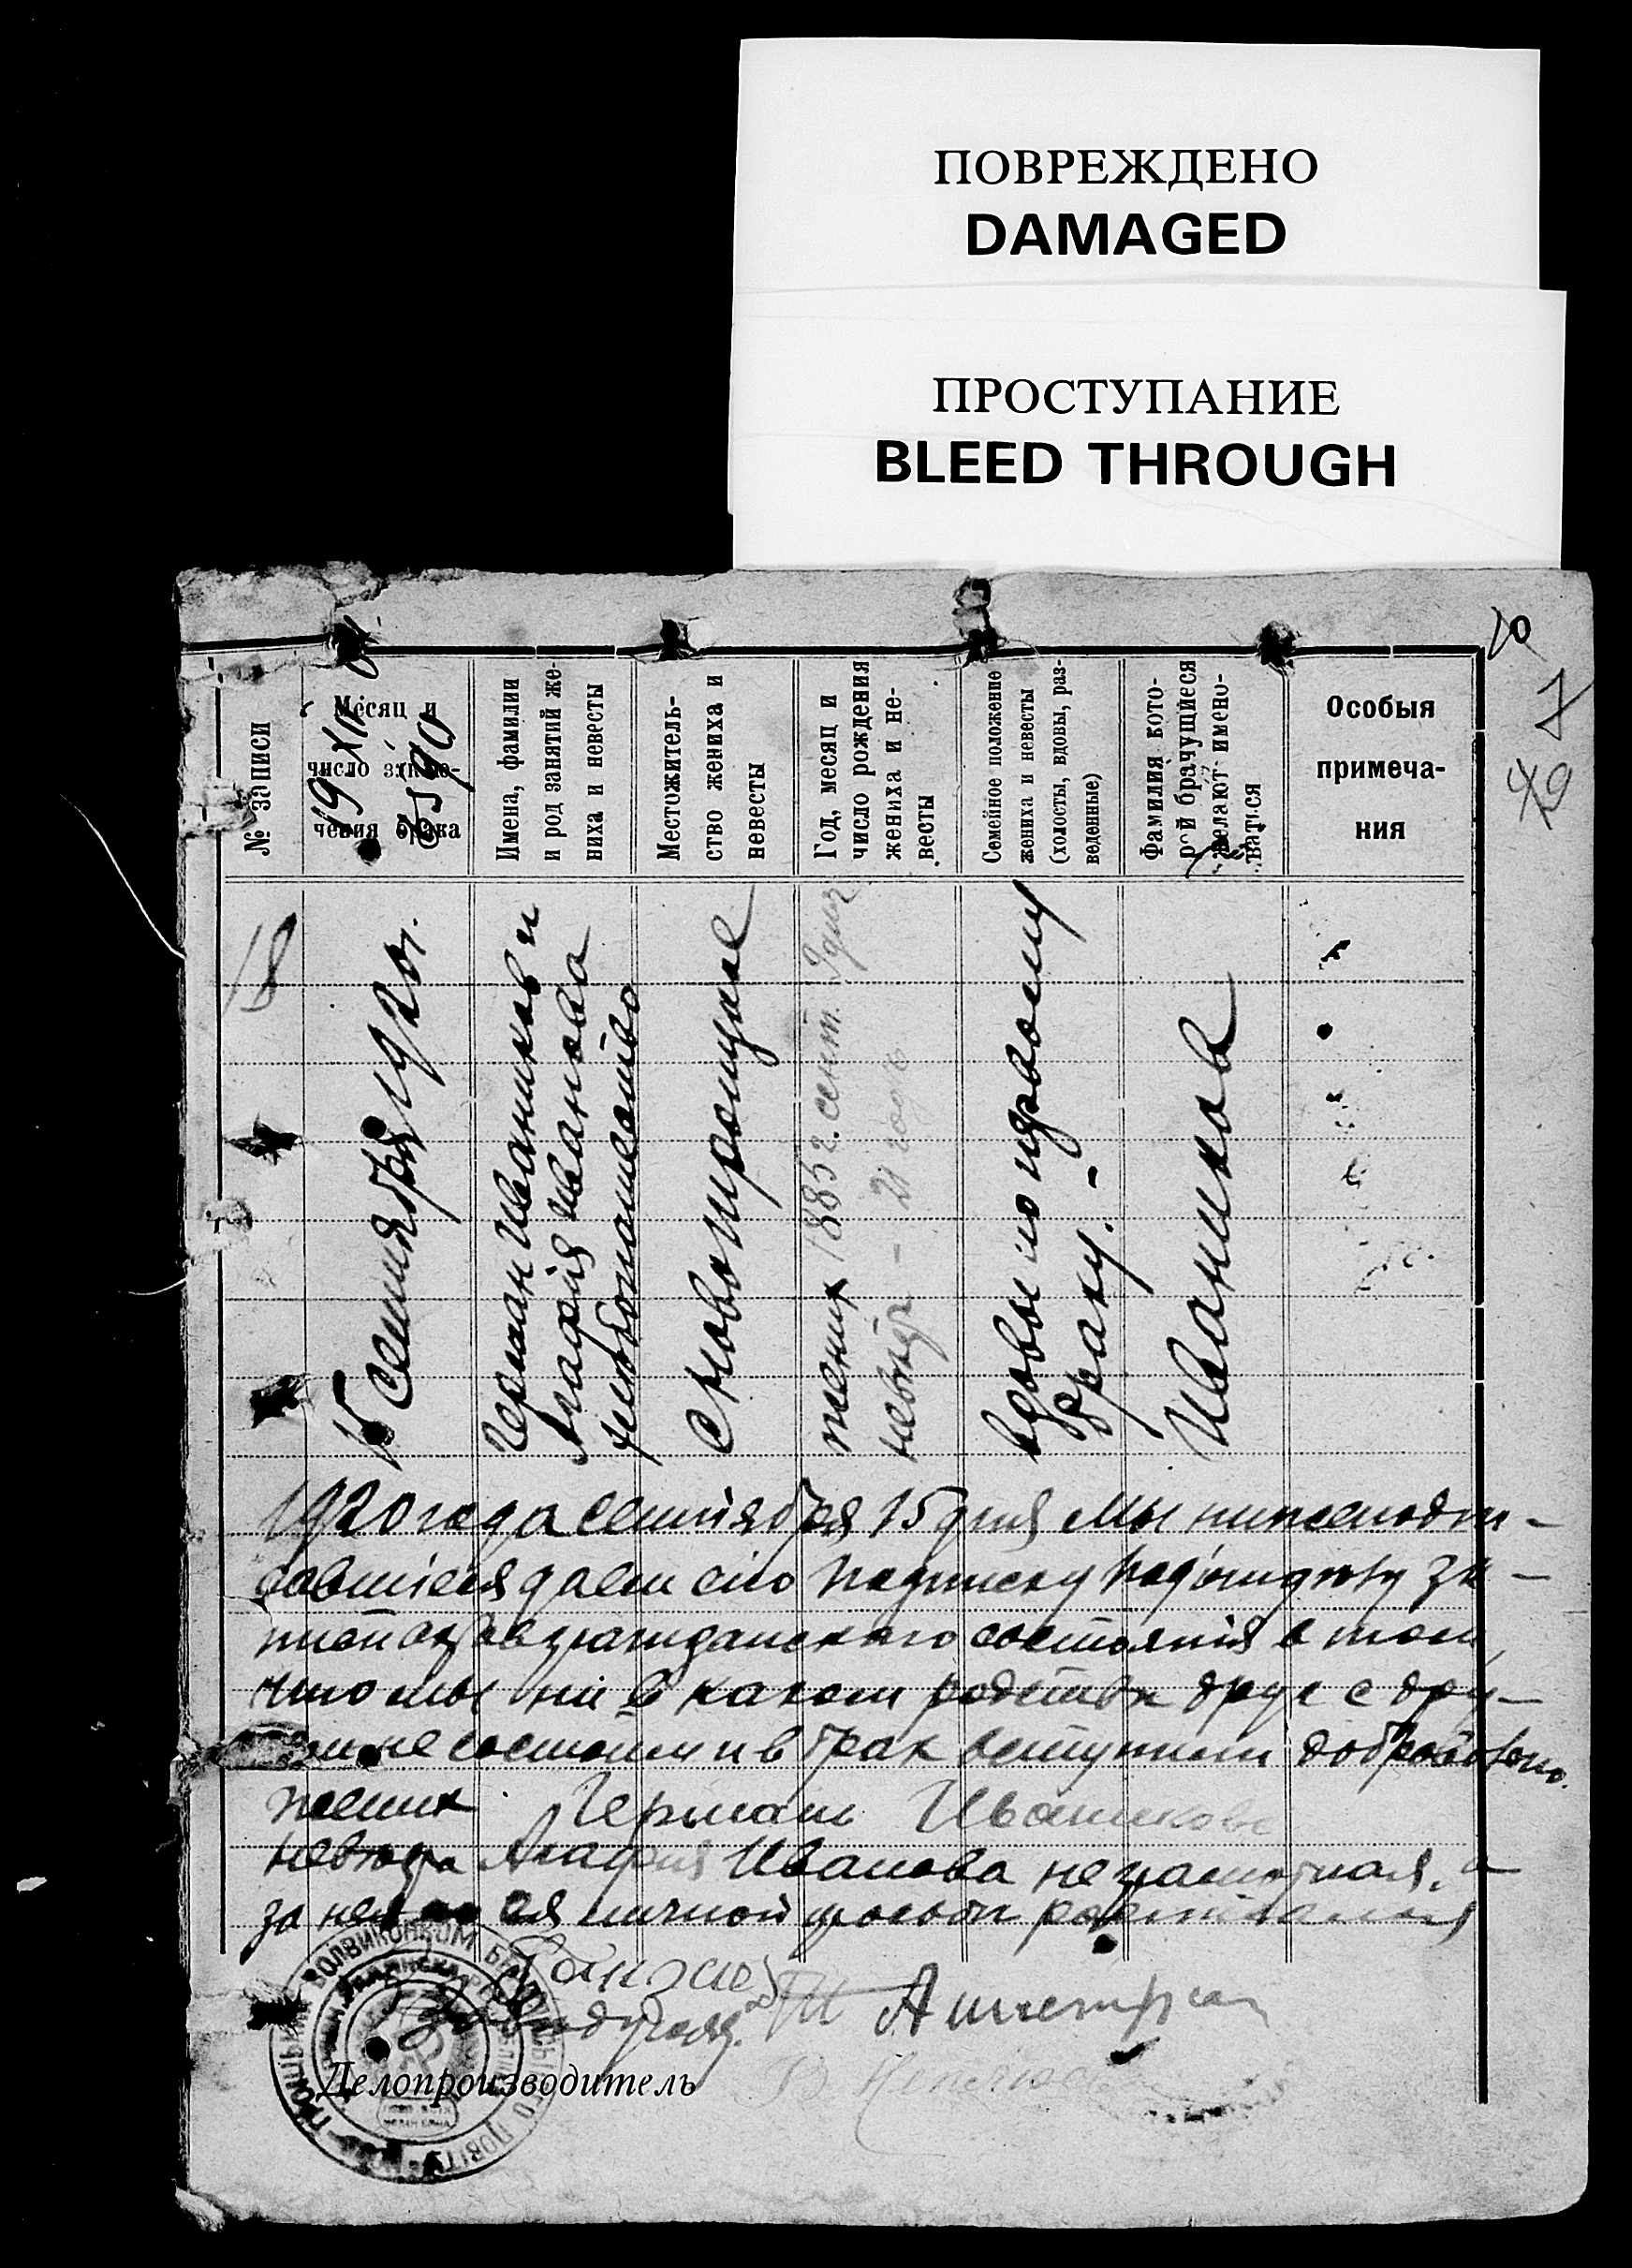 ПОВРЕЖДЕНО
DAMAGED
ПРОСТУПАНИЕ
BLEED THROUGH
10
7
49
№ записи
Месяц и
число заклю-
чения брака
Имена, фамилии
и род занятий же-
ниха и невесты
Местожитель-
ство жениха и
невесты
Год, месяц и
число рождения
жениха и не-
весты
Семейное положение
жениха и невесты
(холосты, вдовы, раз-
веденные)
Фамилия кото-
рой брачущиеся
желают имено-
ваться
Особыя
примеча-
ния
18
15 Сентября 1920 г.
Герман Иванников и
Агафия Иванова
хлебопашество
с Новотроицкое
жених 1885 г. сент.
невеста - 21 года
вдовы по первому
браку. -
Иванников
1920 года сентября 15 дня мы нижеподпи-
савшiеся даем сiю подписку подотделу за-
писи актов гражданскаго состоянiя в том,
что мы ни в каком родстве друг с дру-
гом не состоим и в брак вступаем добровольно.
жених Герман Иванников
невеста Агафия Иванова неграмотная, а
за нея ея личной просьбе
Делопроизводитель